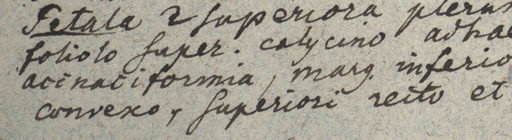 Petala 2 superiora plerum
foliolo super. calycino adhae
acinaciformia, marg. inferio
convexo, superiori recto et